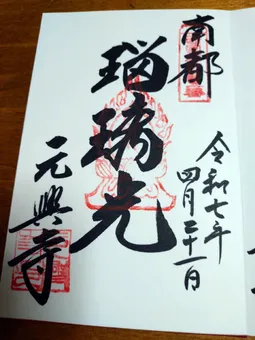 南都
瑠璃光
元興寺
令和七年
四月二十一日